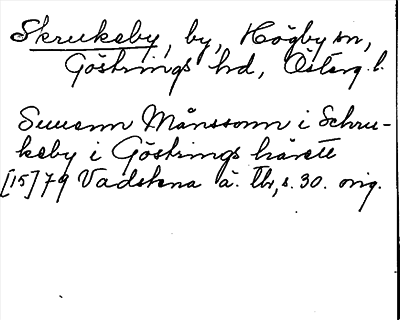 Skrukeby, by, Högby sn,
Göstrings hd, Österg. l.
Suuenn Månssonn i Schru-
keby i Göstrings härett
[15]79 Vadstena ä. Tb, s. 30. orig.